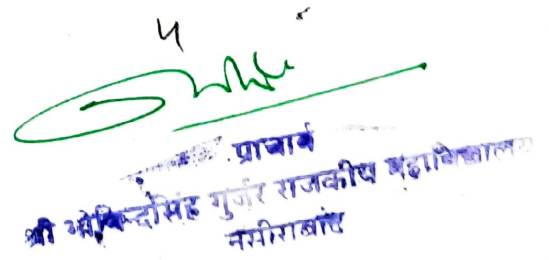 प्राचार्य
श्री गोविन्दसिंह गुर्जर राजकीय महाविद्यालय
नसीराबाद